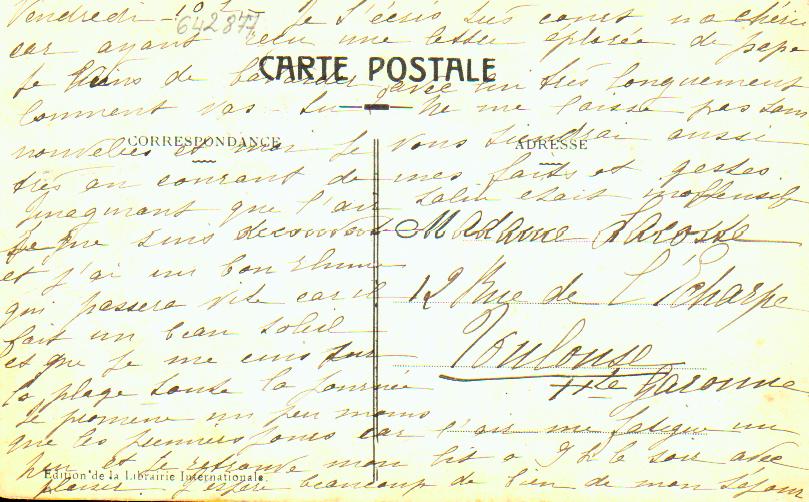 Vendredi 10 h Je t'écris très court ma chérie
642877
car ayant reçu une lettre éplorée de papa
Je viens de bavarder avec lui très longuement
CARTE POSTALE
Comment vas-tu Ne me laisse pas sans
nouvelles et moi Je vous tiendrai aussi
CORRESPONDANCE
ADRESSE
très au courant de mes faits et gestes
Imaginant que l'air salin était inoffensif
Je me suis
et j'ai un bon rhume
qui passera vite car il
fait un beau soleil
et que je me cuis sur
la plage toute la Journée
Je promène un peu moins
que les premiers jours car l'air me fatigue un
peu et Je retrouve mon lit à 9 h le soir avec
plaisir J'espère beaucoup de bien de mon séjour
Madame Larosse
12 Rue de l'Écharpe
Toulouse
Hte Garonne
Edition de la Librairie Internationale.